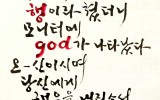 행이라 했더니
모니터에
god가 나타났다
오-신이시여
당신에게